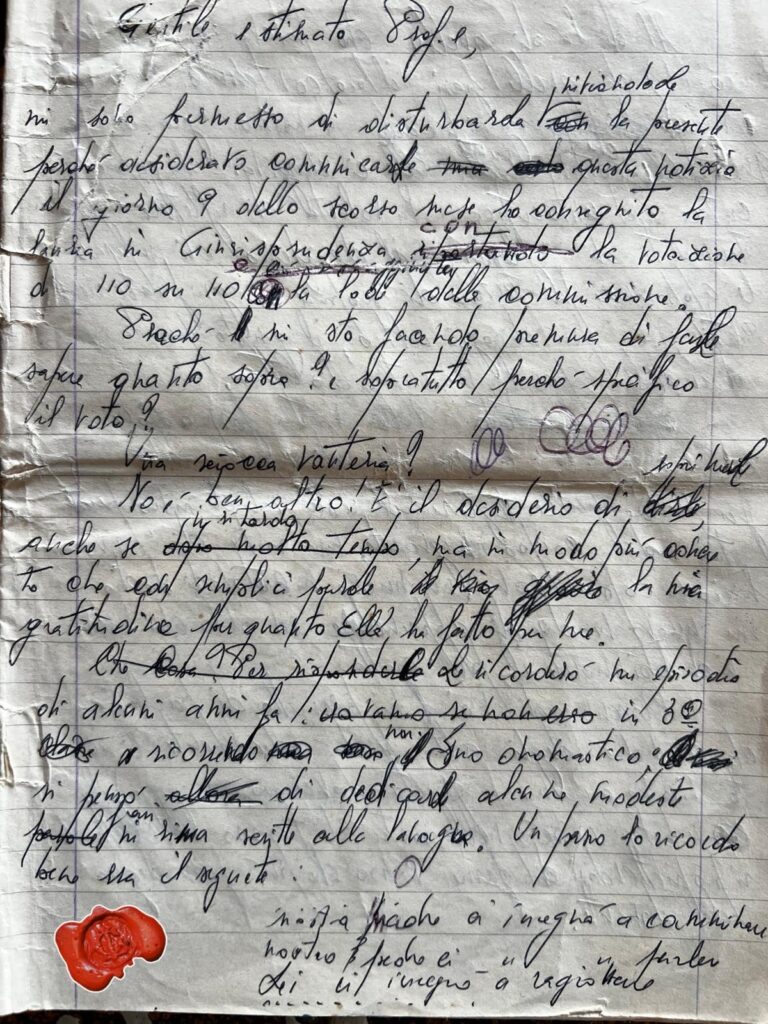 Gentile e stimato Prof.e,
inviandole
mi sono permesso di disturbarla con la presente
perché desideravo comunicarle questa notizia
il giorno 9 dello scorso mese ho conseguito la
con
laurea in Giurisprudenza riportando la votazione
di 110 su 110 e la lode della commissione.
Perché mi sto facendo premura di farle
sapere quanto sopra? e sopratutto perché specifico
il voto?
Una sciocca vanteria?
esprimerle
No, ben altro! È il desiderio di
in ritardo
anche se dopo molto tempo, ma in modo più concre
to che con semplici parole la mia
gratitudine per quanto Ella ha fatto per me.
Che cosa? Per rispondere Le ricorderò un episodio
di alcuni anni fa: eravamo se non erro in 3ª
noi
e ricorrendo il Suo onomastico,
si pensò allora di dedicarle alcune modeste
frasi
parole in rima scritte alla lavagna. Un passo lo ricordo
bene era il seguente:
nostra madre ci insegnò a camminare
nostro padre ci " " parlare
Lei ci insegnò a ragionare